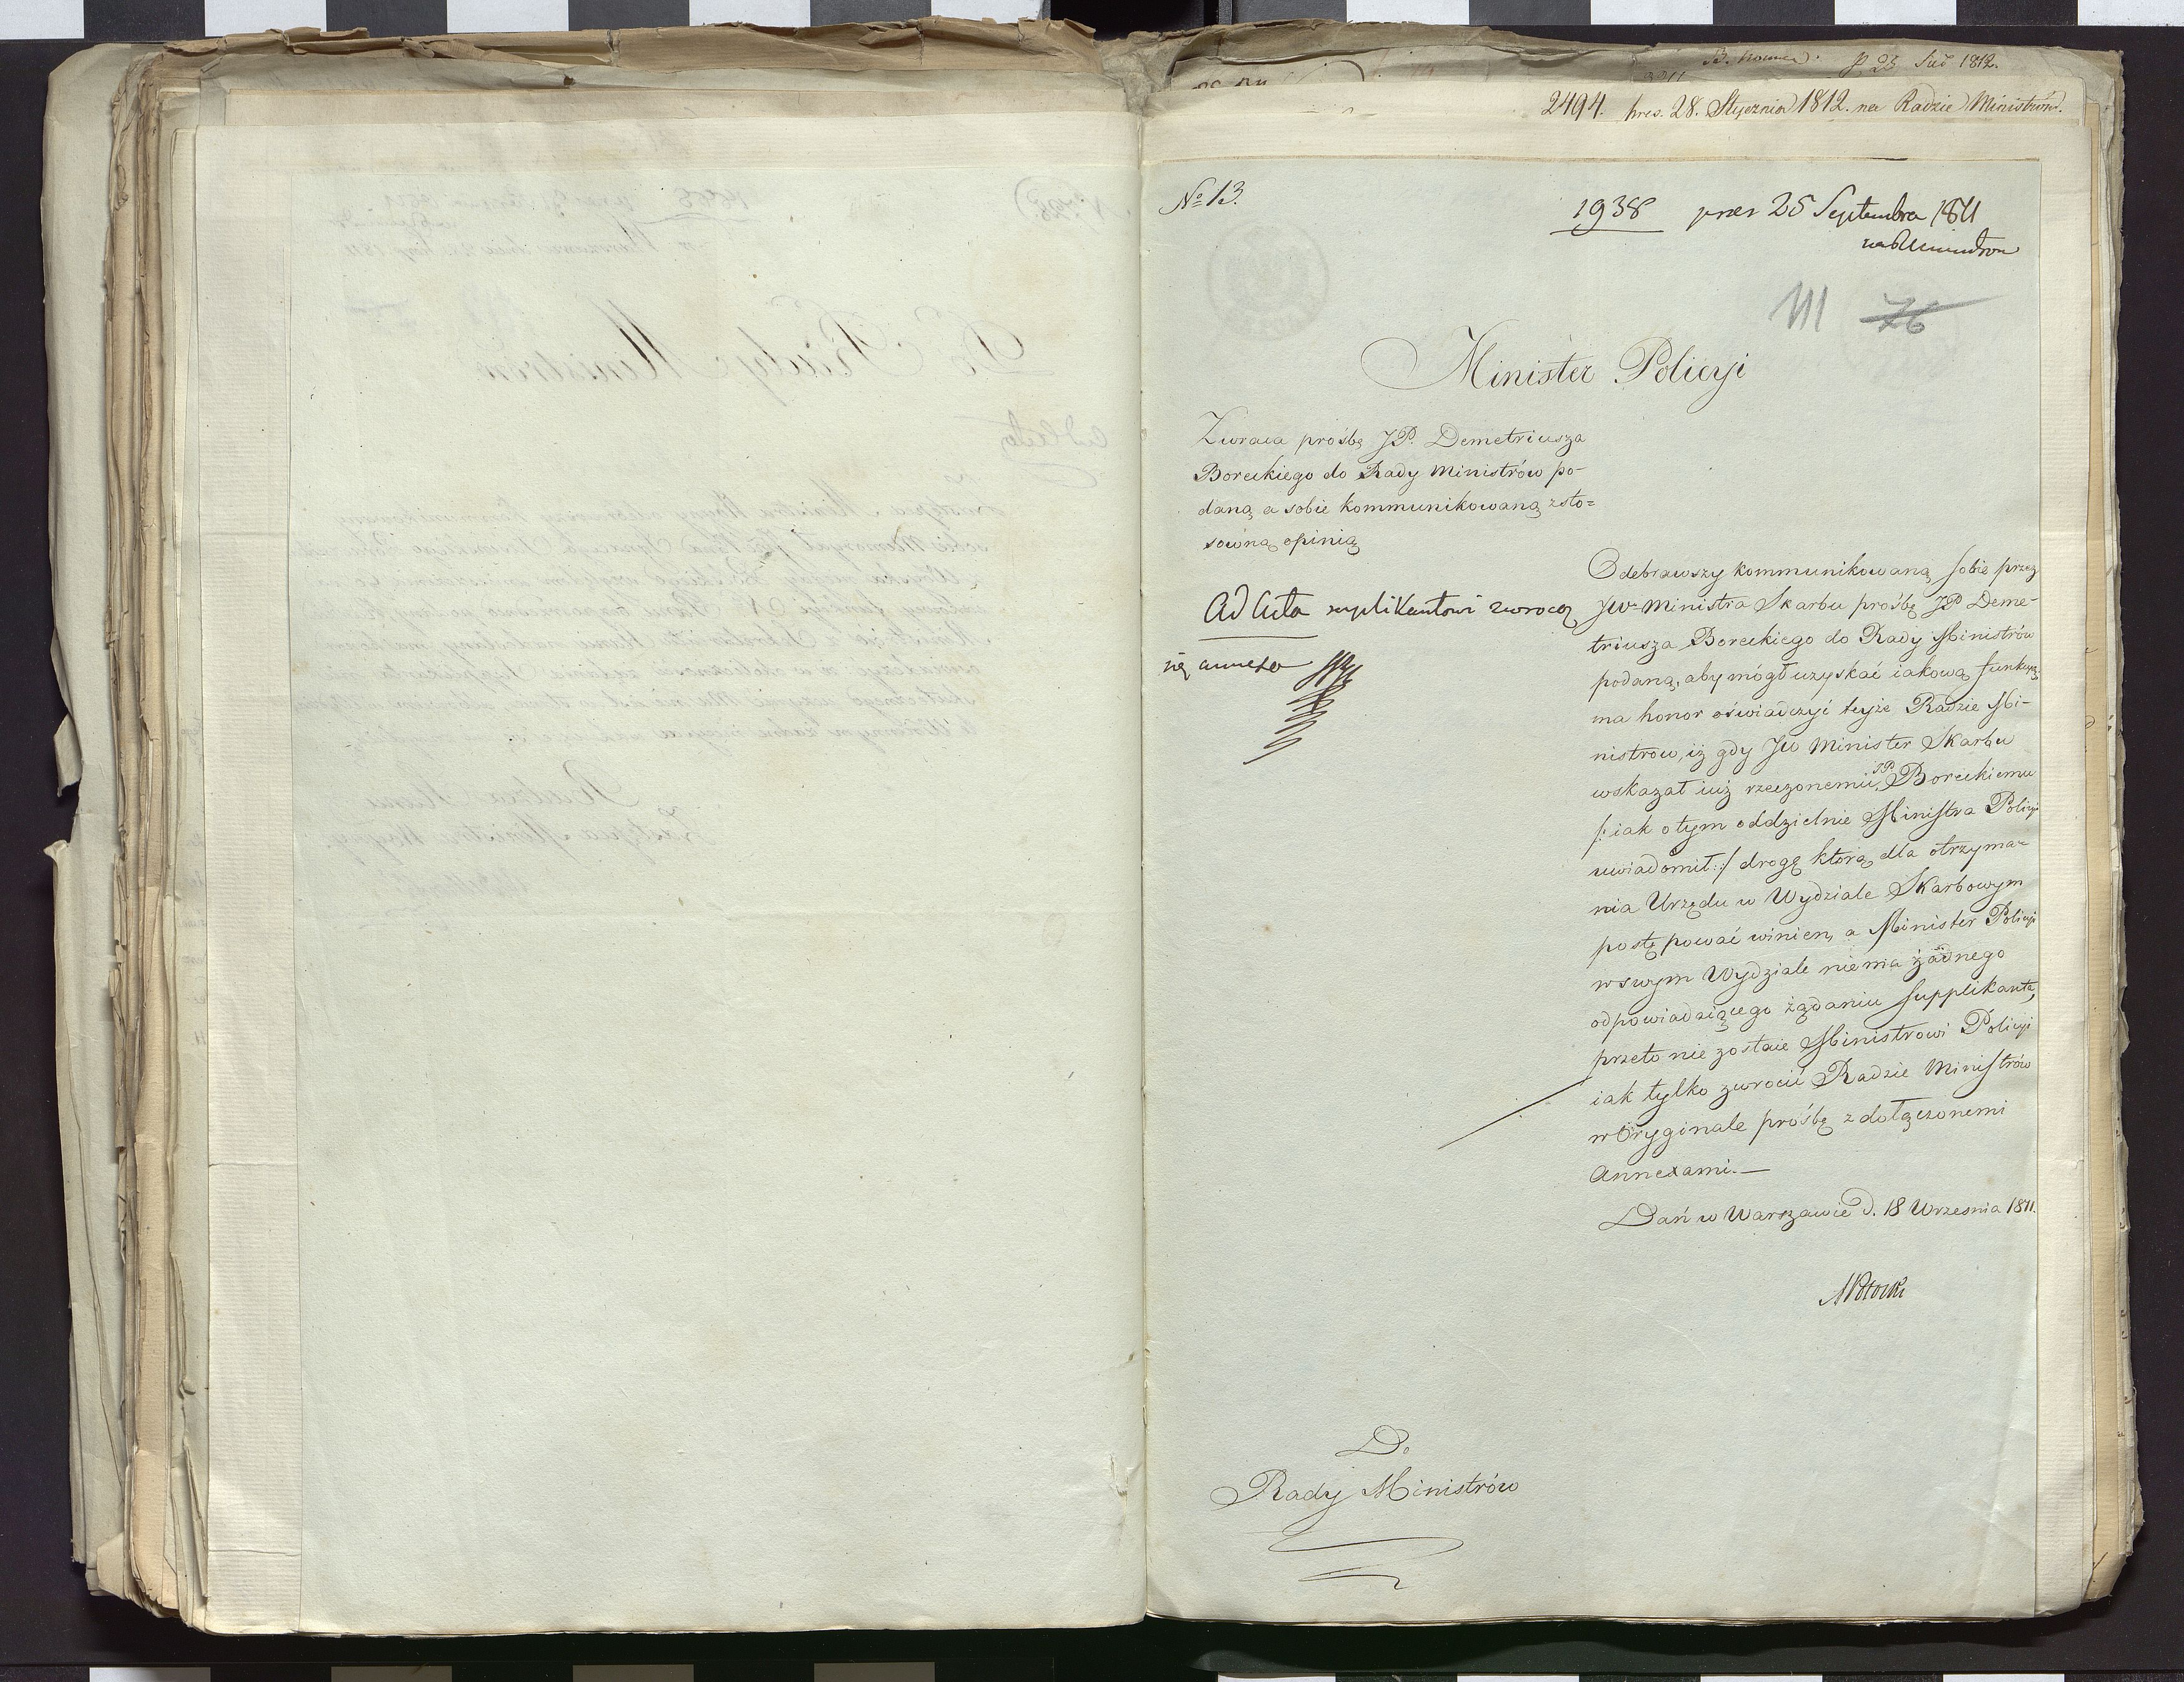 2494. pres. 28. Stycznia 1812. na Radzie Ministrów.
No 13.
1938 pres 25 Septembra 1811
111 76
Minister Policyi
Zwraca prośbę JP. Demetriusza
Boreckiego do Rady Ministrów po-
daną a sobie kommunikowaną z sto=
sowną opinią
Ad Acta suplikantowi zwrocą
się annexa
Odebrawszy kommunikowaną sobie przez
JW. Ministra Skarbu prośbę JP Deme-
triusza Boreckiego do Rady Ministrów
podaną, aby mógł uzyskać iakową funkcyą,
ma honor oświadczyć teyże Radzie Mi-
nistrow, iż gdy JW Minister Skarbu
wskazał iuż rzeczonemu JP. Boreckiemu
/: iak o tym oddzielnie Ministra Policyi
uwiadomił :/ drogę którą dla otrzyma-
nia Urzędu w Wydziale Skarbowym
postępować winien, a Minister Policyi
w swym Wydziale nie ma żadnego
odpowiadaiącego żądaniu supplikanta,
przeto nie zostaie Ministrowi Policyi
iak tylko zwrocić Radzie Ministrów
w Oryginale prośbę z dołączonemi
Annexami.—
Dań w Warszawie d. 18 Wrzesnia 1811.
APotocki
Do
Rady Ministrów